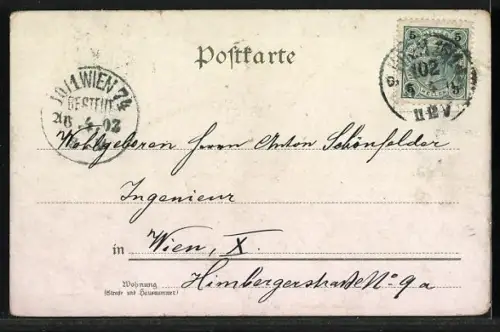 Postkarte
5 5
10/1 WIEN 74
BESTELLT
26 4 02
102
5 5
11-12V
Wohlgeboren Herrn Anton Schönfelder
Ingenieur
in Wien, X.
Wohnung
(Straße und Hausnummer)
Himbergerstraße No. 9a